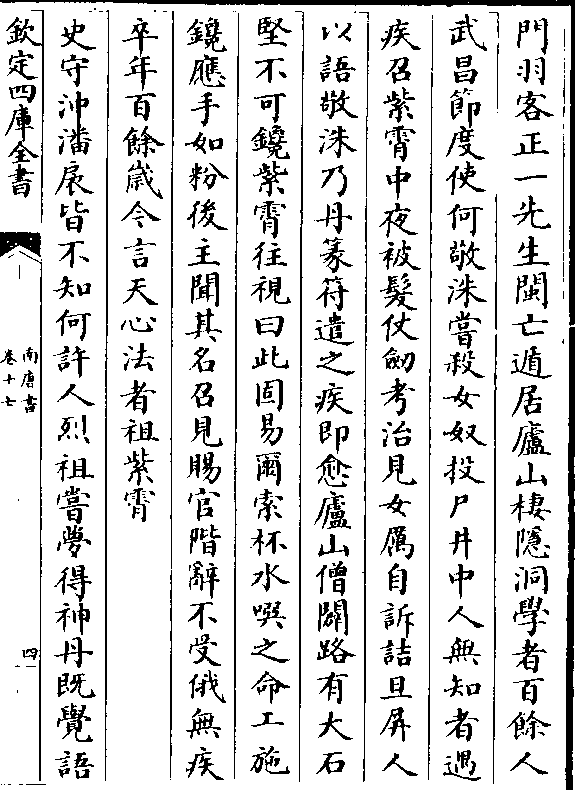 門羽客正一先生閩亡遁居廬山棲隱洞學者百餘人
武昌節度使何敬洙嘗殺女奴投尸井中人無知者遇
疾召紫霄中夜被髮仗劒考治見女厲自訴詰旦屏人
以語敬洙乃丹篆符遣之疾即愈廬山僧闢路有大石
堅不可鐫紫霄往視曰此固易爾索杯水噀之命工施
鐫應手如粉後主聞其名召見賜官階辭不受俄無疾
卒年百餘歲今言天心法者祖紫霄
史守沖潘扆皆不知何許人烈祖嘗夢得神丹既覺語
欽定四庫全書
南唐書
卷十七
四